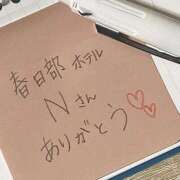 春日部 ホテル
Nさん
ありがとう